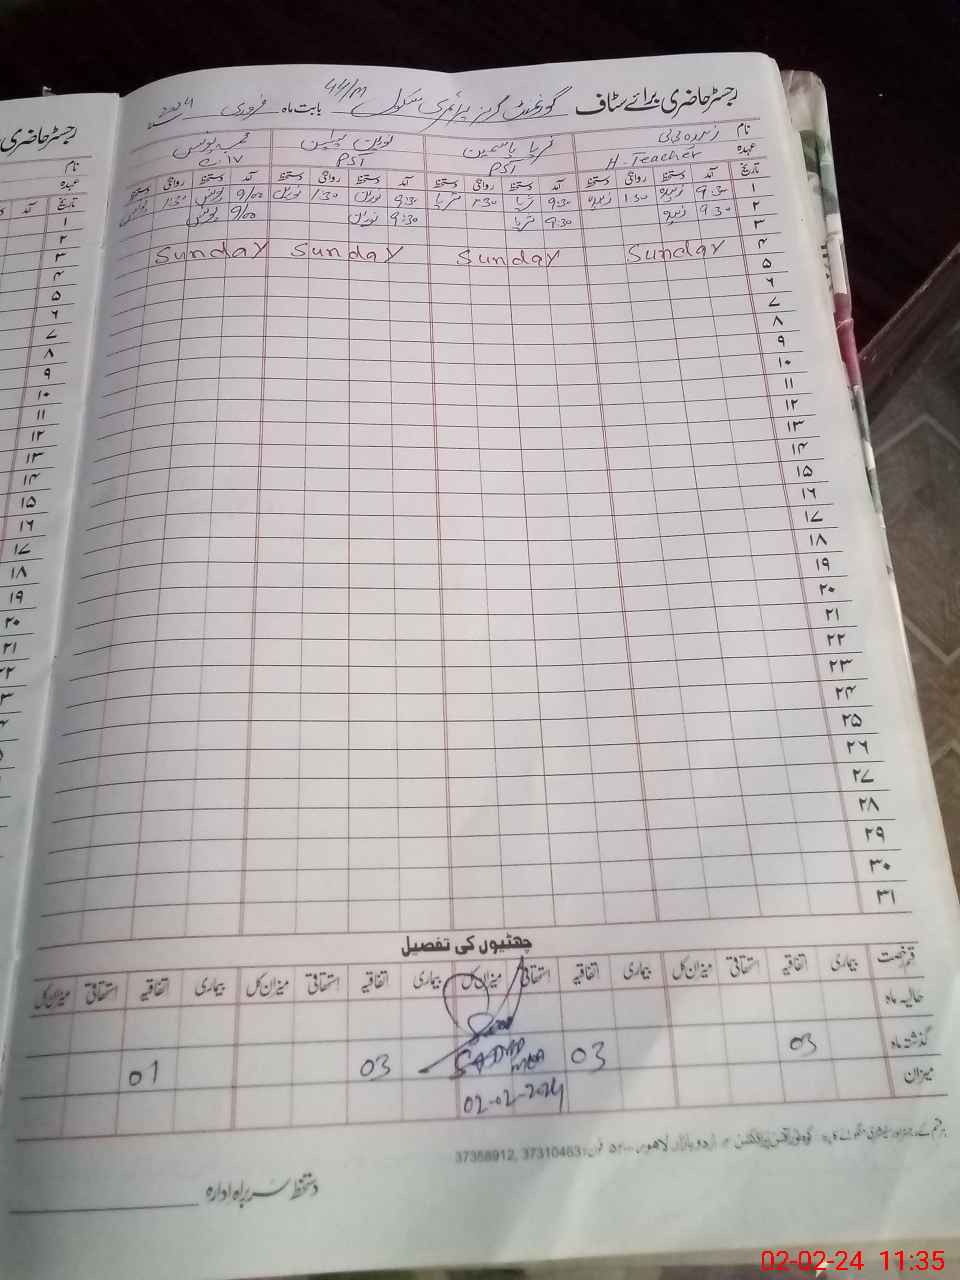 رجسٹر حاضری برائے سٹاف گورنمنٹ گرلز پرائمری سکول 44/M بابت ماہ فروری 2024
نام زبیدہ بی بی ثریا یاسمین نورین محمد یونس
عہدہ H.Teacher PST PST C.IV
تاریخ آمد دستخط روانگی دستخط آمد دستخط روانگی دستخط آمد دستخط روانگی دستخط آمد دستخط روانگی دستخط
۱ 9:30 زبیدہ 1:30 زبیدہ 9:30 ثریا 1:30 ثریا 9:30 نورین 1:30 نورین 9/00 یونس 1:30 یونس
۲ 9:30 زبیدہ 9:30 ثریا 9:30 نورین 9/00 یونس
۳
۴ Sunday Sunday Sunday Sunday
۵
۶
۷
۸
۹
۱۰
۱۱
۱۲
۱۳
۱۴
۱۵
۱۶
۱۷
۱۸
۱۹
۲۰
۲۱
۲۲
۲۳
۲۴
۲۵
۲۶
۲۷
۲۸
۲۹
۳۰
۳۱
چھٹیوں کی تفصیل
قسم رخصت بیماری اتفاقیہ استحقاقی میزان کل بیماری اتفاقیہ استحقاقی میزان کل بیماری اتفاقیہ استحقاقی میزان کل بیماری اتفاقیہ استحقاقی میزان کل
حالیہ ماہ
گذشتہ ماہ 03 03 03 01
میزان
02-02-2024
اردو بازار لاہور فون: 37310463, 37358912
دستخط سربراہ ادارہ
رجسٹر حاضری
نام
عہدہ
تاریخ
آمد
۱
۲
۳
۴
۵
۶
۷
۸
۹
۱۰
۱۱
۱۲
۱۳
۱۴
۱۵
۱۶
۱۷
۱۸
۱۹
۲۰
۲۱
02-02-24 11:35